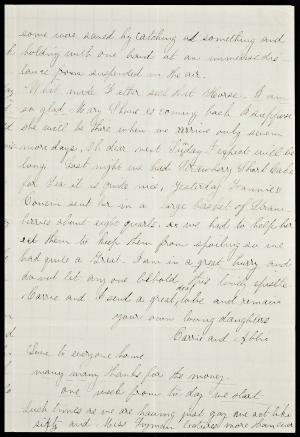 some were saved by catching at something and
holding with one hand at an immense dis-
tance from suspended in the air.
What made Father sell that Horse. I am
so glad Mary is coming back I suppose
she will be there when we arrive only seven
more days, Oh dear next Friday I expect will be
long. Last night we had Strawberry Short Cake
for Tea it is quite nice, Yesterday Fannies
Cousin sent her in a large basket of Straw-
berries about eight quarts. so we had to help her
eat them to keep them from spoiling so we
had quite a treat. I am in a great hurry and
do not let any one behold this lovely epistle
Carrie and I send a great deal, love and remain
your own loving daughters
Carrie and Abbie
Love to everyone home
many many thanks for the money
one week from to day we start
Such times as we are having just now we act like
and Miss Lyman lectures more than ever